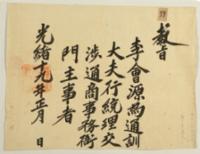 敎旨
李會源爲通訓
大夫行統理交
涉通商事務衙
門主事者
光緖十九年正月 日